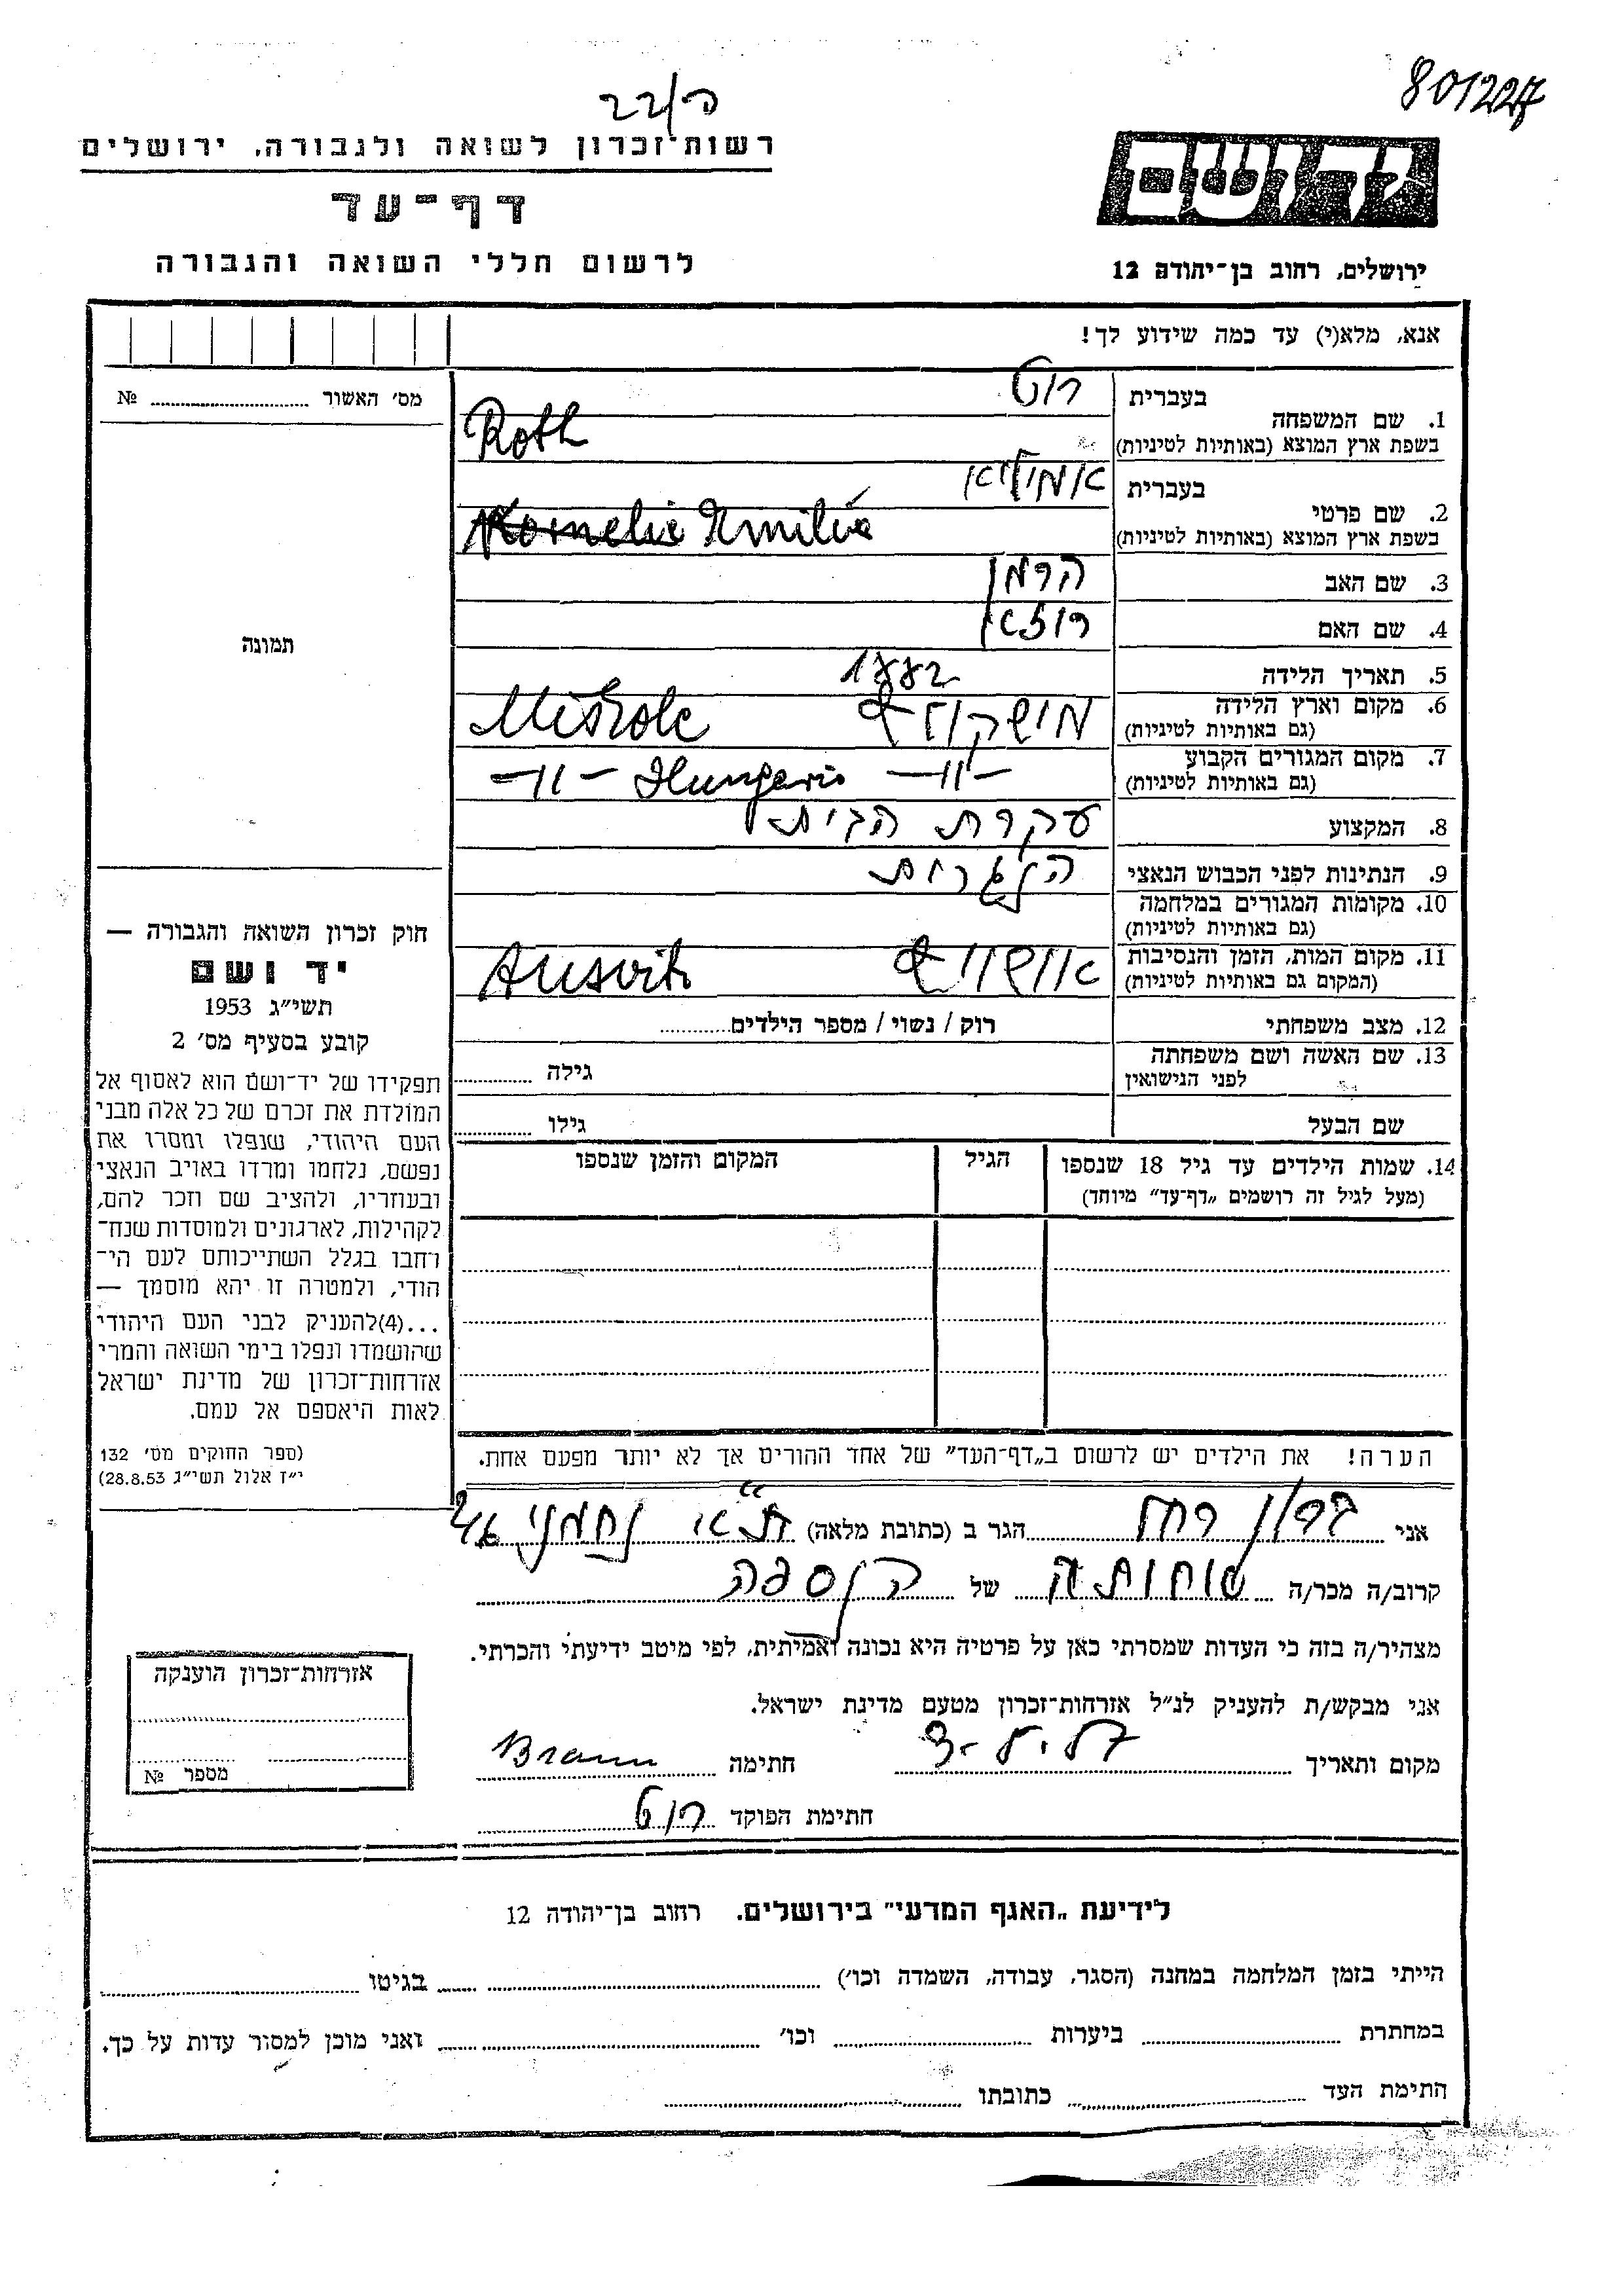 801227
ה/22
רשות־זכרון לשואה ולגבורה, ירושלים
דף־עד
לרשום חללי השואה והגבורה
יד ושם
ירושלים, רחוב בן־יהודה 12
אנא, מלא(י) עד כמה שידוע לך!
מס׳ האשור № ........
תמונה
1. שם המשפחה
בעברית רוט
בשפת ארץ המוצא (באותיות לטיניות) Roth
2. שם פרטי
בעברית אמיליא
בשפת ארץ המוצא (באותיות לטיניות) Kornelie Emilia
3. שם האב הרמן
4. שם האם
5. תאריך הלידה 1882
6. מקום וארץ הלידה
(גם באותיות לטיניות) מישקולץ Miskolc
7. מקום המגורים הקבוע
(גם באותיות לטיניות) -11- Hungaria -11-
8. המקצוע עקרת הבית
9. הנתינות לפני הכבוש הנאצי הונגרית
10. מקומות המגורים במלחמה
(גם באותיות לטיניות)
11. מקום המות, הזמן והנסיבות
(המקום גם באותיות לטיניות) אושויץ Ausvitz
12. מצב משפחתי רוק / נשוי / מספר הילדים........
13. שם האשה ושם משפחתה
לפני הנישואין גילה ........
שם הבעל גילו ........
14. שמות הילדים עד גיל 18 שנספו
(מעל לגיל זה רושמים „דף־עד״ מיוחד)
הגיל
המקום והזמן שנספו
הערה! את הילדים יש לרשום ב„דף־העד״ של אחד ההורים אך לא יותר מפעם אחת.
חוק זכרון השואה והגבורה —
יד ושם
תשי״ג 1953
קובע בסעיף מס׳ 2
תפקידו של יד־ושם הוא לאסוף אל
המולדת את זכרם של כל אלה מבני
העם היהודי, שנפלו ומסרו את
נפשם, נלחמו ומרדו באויב הנאצי
ובעוזריו, ולהציב שם וזכר להם,
לקהילות, לארגונים ולמוסדות שנח־
רחבו בגלל השתייכותם לעם הי־
הודי, ולמטרה זו יהא מוסמך —
...(4)להעניק לבני העם היהודי
שהושמדו ונפלו בימי השואה והמרי
אזרחות־זכרון של מדינת ישראל
לאות היאספם אל עמם.
(ספר החוקים מס׳ 132
י״ז אלול תשי״ג 28.8.53)
אני ברון רחל הגר ב (כתובת מלאה) ת״א נחמני
קרוב/ה מכר/ה של הנספה
מצהיר/ה בזה כי העדות שמסרתי כאן על פרטיה היא נכונה ואמיתית, לפי מיטב ידיעתי והכרתי.
אני מבקש/ת להעניק לנ״ל אזרחות־זכרון מטעם מדינת ישראל.
מקום ותאריך חתימה Braun
חתימת הפוקד רוט
אזרחות־זכרון הוענקה
מספר №
לידיעת „האגף המדעי״ בירושלים, רחוב בן־יהודה 12
הייתי בזמן המלחמה במחנה (הסגר, עבודה, השמדה וכו׳) ........ בגיטו ........
במחתרת ........ ביערות ........ וכו׳ ........ ואני מוכן למסור עדות על כך.
חתימת העד ........ כתובתו ........